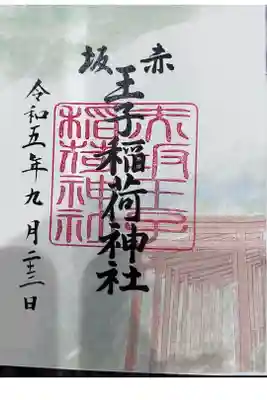 赤坂
王子稲荷神社
赤坂王子
稲荷神社
令和五年九月二三日